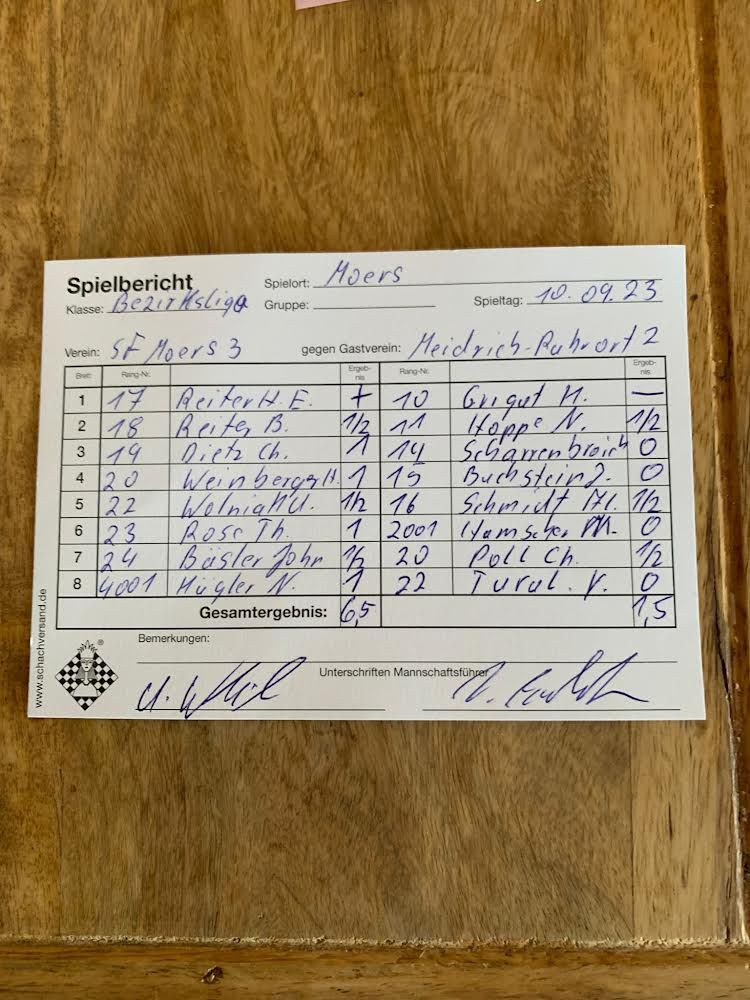 Spielbericht Spielort: Moers
Klasse: Bezirksliga Gruppe: Spieltag: 10.09.23
Verein: SF Moers 3 gegen Gastverein: Meidrich-Ruhrort 2
Brett Rang-Nr. Ergeb-nis Rang-Nr. Ergeb-nis
1 17 Reiter H. E. + 10 Grigut H. —
2 18 Reiter B. 1/2 11 Hoppe N. 1/2
3 19 Dietz Ch. 1 14 Scharrenbroich 0
4 20 Weinberger H. 1 15 Buchstein J. 0
5 22 Wolniak U. 1/2 16 Schmidt 1/2
6 23 Rose Th. 1 2001 Hamscher M. 0
7 24 Bäsler John 1/2 20 Poll Ch. 1/2
8 4001 Hügler N. 1 22 Tural. V. 0
Gesamtergebnis: 6,5 1,5
Bemerkungen:
Unterschriften Mannschaftsführer
www.schachversand.de
®